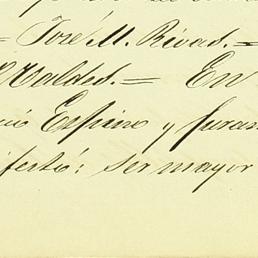 = José M. Rivas. =
Valdes. = En
Espino y juram
ifestó: ser mayor